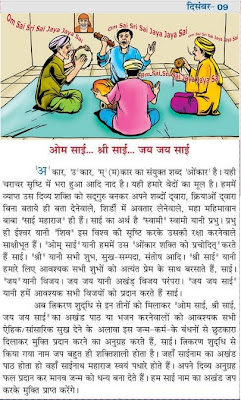 दिसंबर- 09
Om Sai Sri Sai Jaya Jaya Sai
Om Sai Sri Sai Jaya Jaya Sai
Om Sai Sri Sai Jaya Jaya Sai
Om Sai Sri Sai Jaya Jaya Sai
ओम साई... श्री साई... जय जय साई
'अ'कार, 'उ'कार, 'म्'(म)कार का संयुक्त शब्द 'ओंकार' है। यही
चराचर सृष्टि में भरा हुआ आदि नाद है। यही हमारे वेदों का मूल है। हममें
व्याप्त उस दिव्य शक्ति को सद्गुरु बनकर अपने शब्दों द्वारा, क्रियाओं द्वारा
बिना बताये ही बता देनेवाले, शिर्डी में अवतार लेनेवाले, महा महिमावान
बाबा 'साई महाराज' ही हैं। साई का अर्थ है 'स्वामी' स्वामी यानी प्रभु। प्रभु
हो ईश्वर यानी "शिव" इस विश्व को सृष्टि करके उसकी रक्षा करनेवाले
साक्षीभूत हैं। "ओम् साई" यानी हममें उस 'ओंकार शक्ति को प्रचोदित्' करते
हैं साई। "श्री" यानी सभी शुभ, सुख-सम्पदा, संतोष आदि। "श्री साई" यानी
हमारे लिए आवश्यक सभी शुभों को अत्यंत प्रेम के साथ बरसाते हैं, साई।
"जय" यानी विजय। जय जय यानी अखंड विजय परंपरा। "जय जय साई"
यानी हमें आवश्यक सभी विजयों को प्रदान करते हैं साई।
अब त्रिकरण शुद्धि से इन तीनों को मिलाकर 'ओम साई, श्री साई,
जय जय साई' का अखंड पाठ या भजन करनेवालों को आवश्यक सभी
ऐहिक/सांसारिक सुख देने के अलावा इस जन्म-कर्म-के बंधनों से छुटकारा
दिलाकर मुक्ति प्रदान करने का अनुग्रह करते हैं, साई। त्रिकरण शुद्धि से
किया गया नाम जप बहुत ही शक्तिशाली होता है। जहाँ साईनाम का अखंड
पाठ होता हो वहाँ साईनाथ महाराज स्वयं पधारे होते हैं। अपने दिव्य अनुग्रह
फल प्रदान कर मानव जन्म को धन्य बना देते हैं। हम साई नाम का अखंड जप
करके मुक्ति प्राप्त करेंगे।